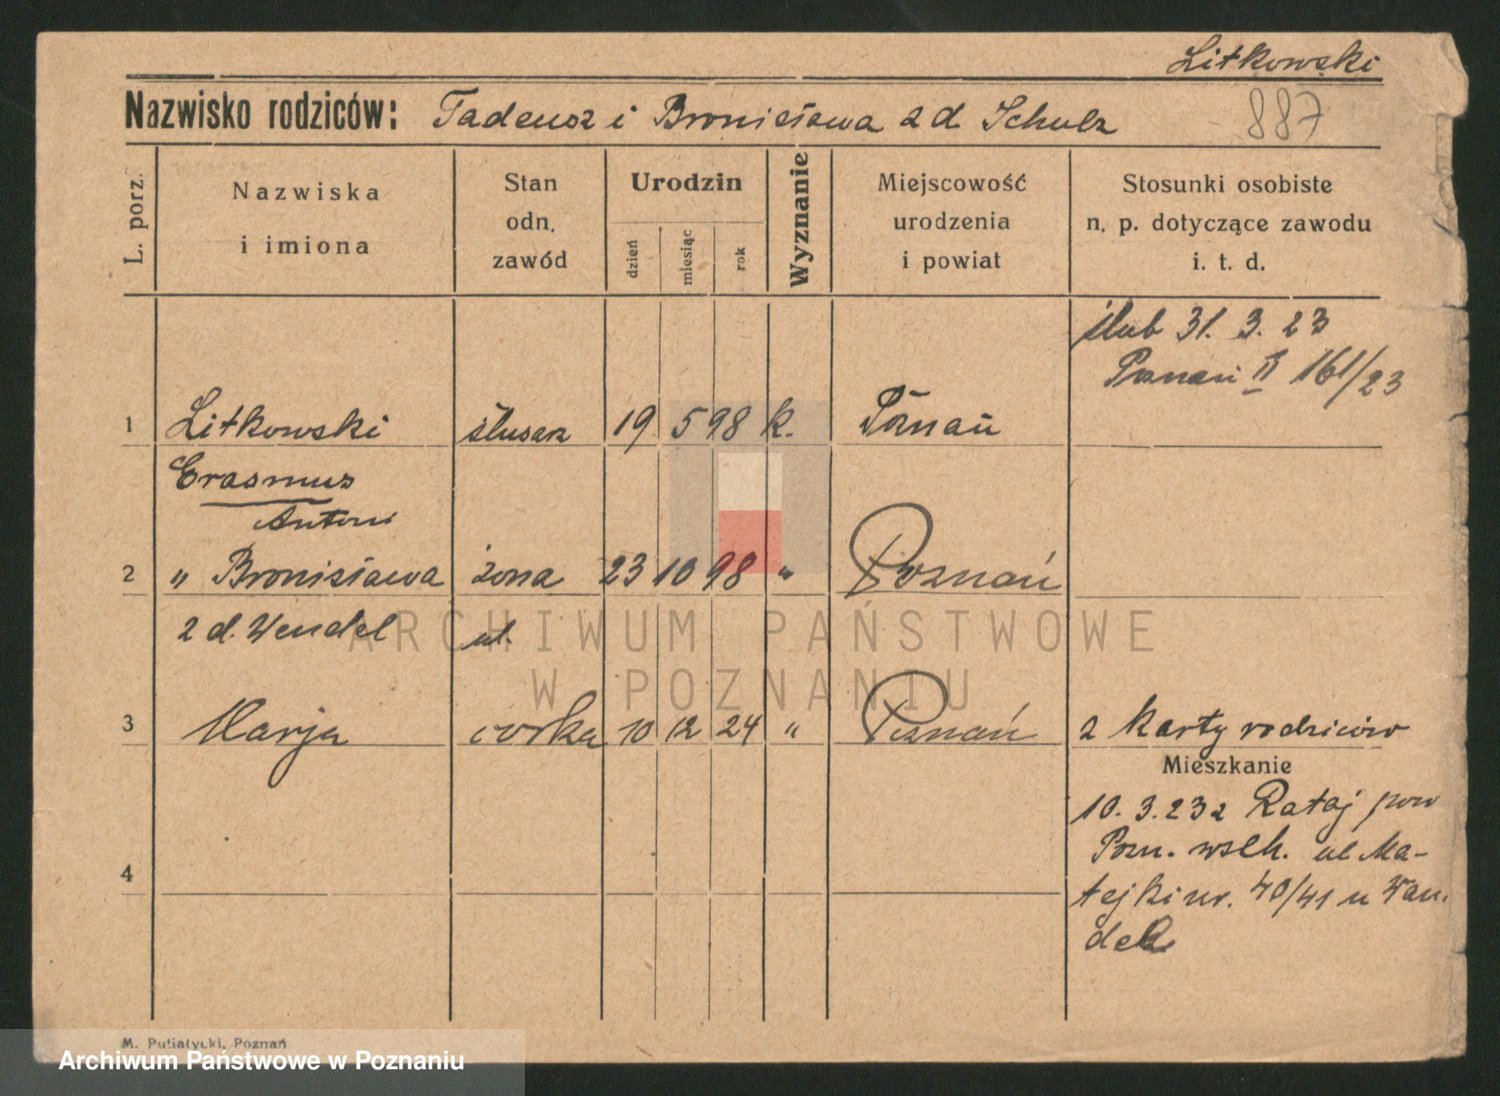 Litkowski
Nazwisko rodziców: Tadeusz i Bronisława z d. Schulz
887
L. porz.
Nazwiska
i imiona
Stan
odn.
zawód
Urodzin
dzień
miesiąc
rok
Wyznanie
Miejscowość
urodzenia
i powiat
Stosunki osobiste
n. p. dotyczące zawodu
i. t. d.
ślub 31. 3. 23
Poznań II 161/23
1 Litkowski ślusarz 19 5 98 k. Poznań
Erasmus
Antoni
2 „ Bronisława żona 23 10 98 „ Poznań
z d. Wendel ul.
3 Marja córka 10 12 24 „ Poznań z karty rodziców
Mieszkanie
10. 3. 23 z Rataj pow
Pozn. wsch. ul Ma-
tejki nr. 40/41 u Wan.
del
4
M. Putiatycki, Poznań
ARCHIWUM PAŃSTWOWE
W POZNANIU
Archiwum Państwowe w Poznaniu